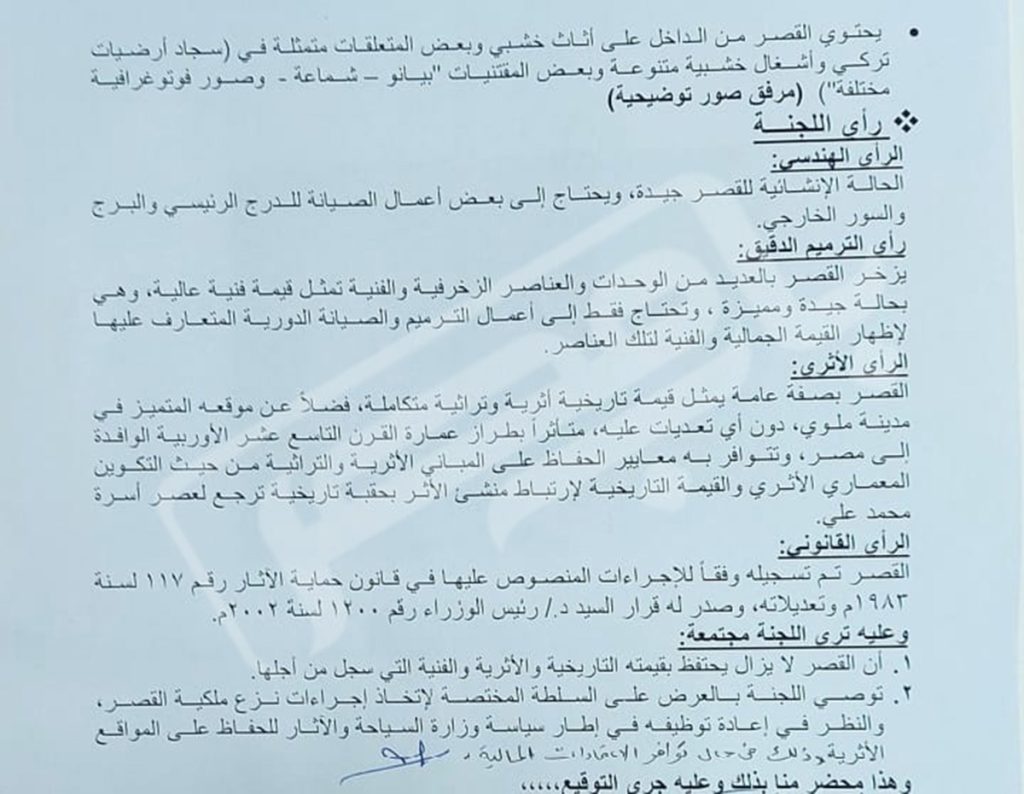 • يحتوي القصر من الداخل على أثاث خشبي وبعض المتعلقات متمثلة في (سجاد أرضيات
تركي وأشغال خشبية متنوعة وبعض المقتنيات "بيانو – شماعة - وصور فوتوغرافية
مختلفة") (مرفق صور توضيحية)
❖ رأي اللجنـــة
الرأي الهندسي:
الحالة الإنشائية للقصر جيدة، ويحتاج إلى بعض أعمال الصيانة للدرج الرئيسي والبرج
والسور الخارجي.
رأي الترميم الدقيق:
يزخر القصر بالعديد من الوحدات والعناصر الزخرفية والفنية تمثل قيمة فنية عالية، وهي
بحالة جيدة ومميزة ، وتحتاج فقط إلى أعمال الترميم والصيانة الدورية المتعارف عليها
لإظهار القيمة الجمالية والفنية لتلك العناصر.
الرأي الأثري:
القصر بصفة عامة يمثل قيمة تاريخية أثرية وتراثية متكاملة، فضلاً عن موقعه المتميز في
مدينة ملوي، دون أي تعديات عليه، متأثراً بطراز عمارة القرن التاسع عشر الأوربية الوافدة
إلى مصر، وتتوافر به معايير الحفاظ على المباني الأثرية والتراثية من حيث التكوين
المعماري الأثري والقيمة التاريخية لإرتباط منشئ الأثر بحقبة تاريخية ترجع لعصر أسرة
محمد علي.
الرأي القانوني:
القصر تم تسجيله وفقاً للإجراءات المنصوص عليها في قانون حماية الآثار رقم ١١٧ لسنة
١٩٨٣م وتعديلاته، وصدر له قرار السيد د./ رئيس الوزراء رقم ١٢٠٠ لسنة ٢٠٠٢م.
وعليه ترى اللجنة مجتمعة:
١. أن القصر لا يزال يحتفظ بقيمته التاريخية والأثرية والفنية التي سجل من أجلها.
٢. توصي اللجنة بالعرض على السلطة المختصة لإتخاذ إجراءات نزع ملكية القصر،
والنظر في إعادة توظيفه في إطار سياسة وزارة السياحة والآثار للحفاظ على المواقع
الأثرية وذلك في حال توافر الاعتمادات المالية .
وهذا محضر منا بذلك وعليه جرى التوقيع،،،،،